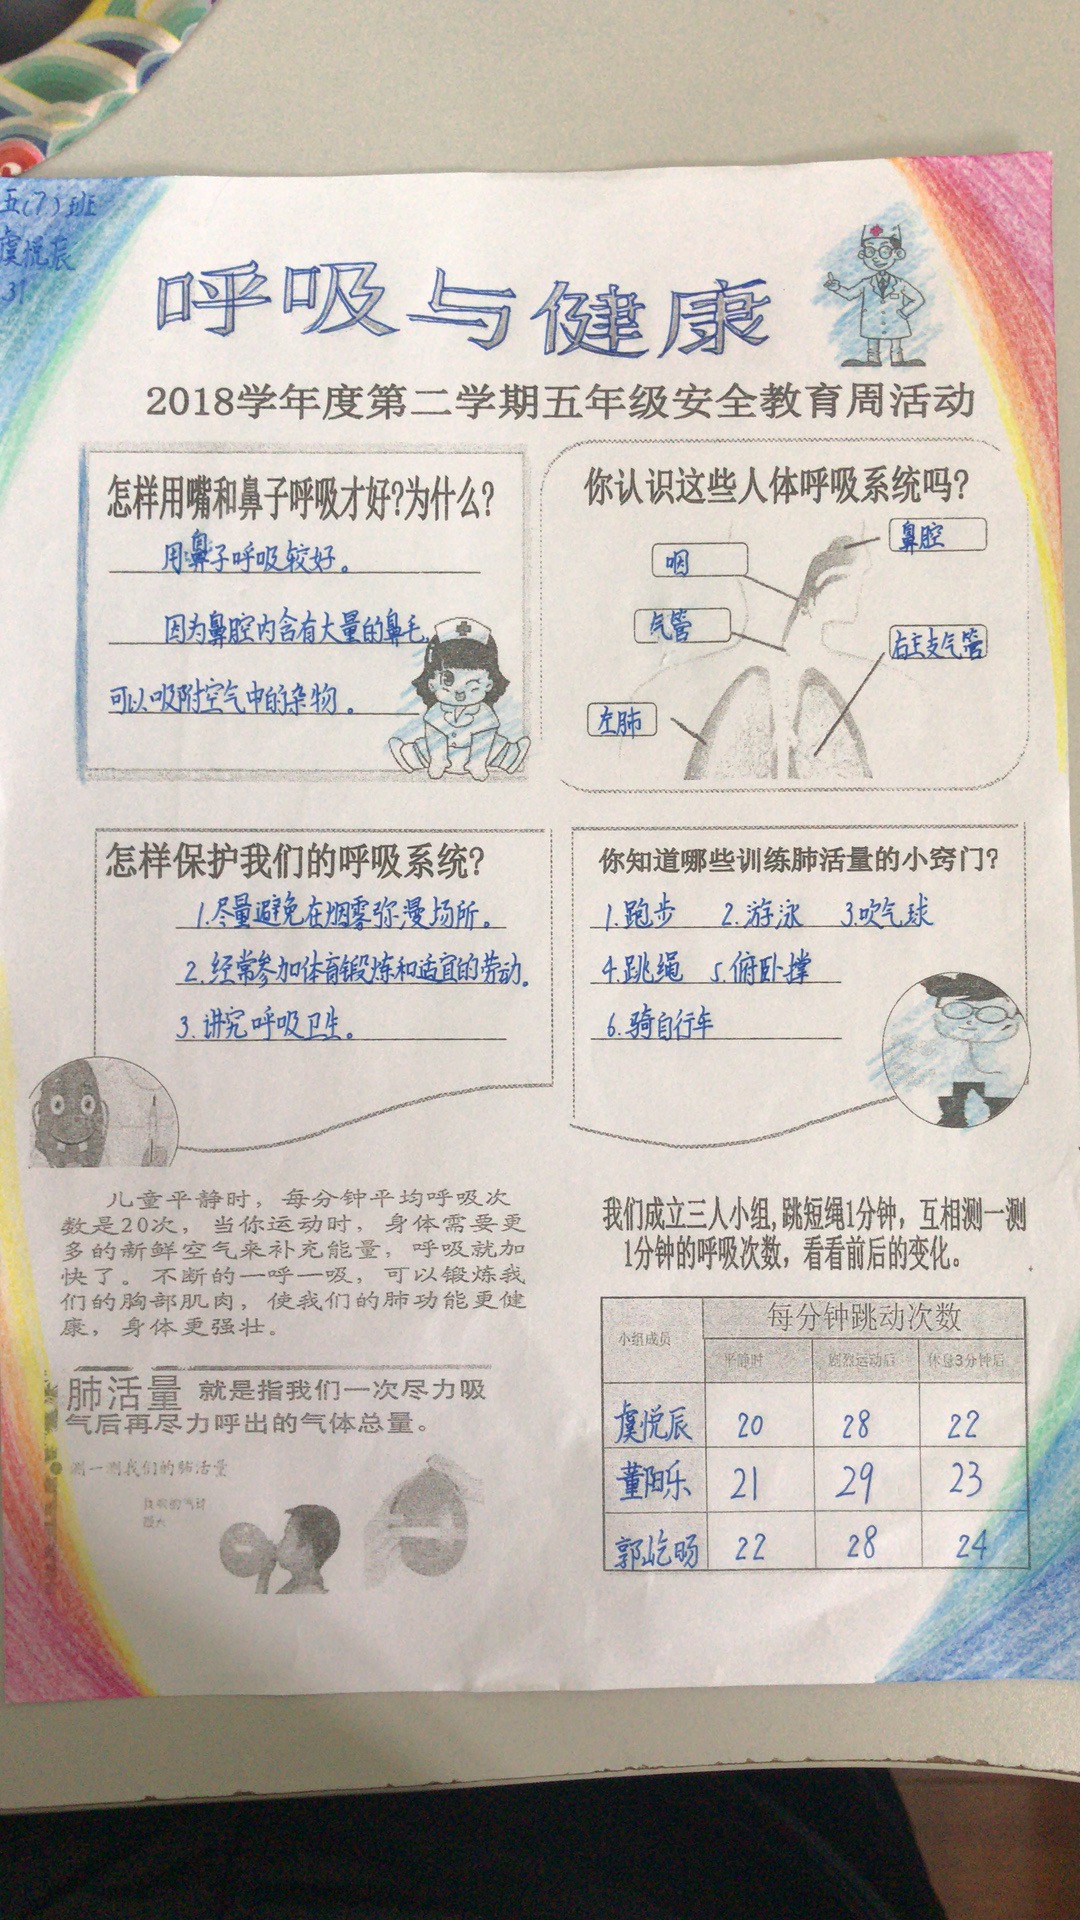 五(7)班
虞悦辰
31
呼吸与健康
2018学年度第二学期五年级安全教育周活动
怎样用嘴和鼻子呼吸才好?为什么?
用鼻子呼吸较好。
因为鼻腔内含有大量的鼻毛,
可以吸附空气中的杂物。
你认识这些人体呼吸系统吗?
鼻腔
咽
气管
右主支气管
左肺
怎样保护我们的呼吸系统?
1.尽量避免在烟雾弥漫场所。
2.经常参加体育锻炼和适宜的劳动。
3.讲究呼吸卫生。
你知道哪些训练肺活量的小窍门?
1.跑步 2.游泳 3.吹气球
4.跳绳 5.俯卧撑
6.骑自行车
儿童平静时，每分钟平均呼吸次
数是20次，当你运动时，身体需要更
多的新鲜空气来补充能量，呼吸就加
快了。不断的一呼一吸，可以锻炼我
们的胸部肌肉，使我们的肺功能更健
康，身体更强壮。
肺活量 就是指我们一次尽力吸
气后再尽力呼出的气体总量。
测一测我们的肺活量
我们成立三人小组,跳短绳1分钟，互相测一测
1分钟的呼吸次数，看看前后的变化。
小组成员 每分钟跳动次数
平静时 剧烈运动后 休息3分钟后
虞悦辰 20 28 22
董阳乐 21 29 23
郭屹旸 22 28 24